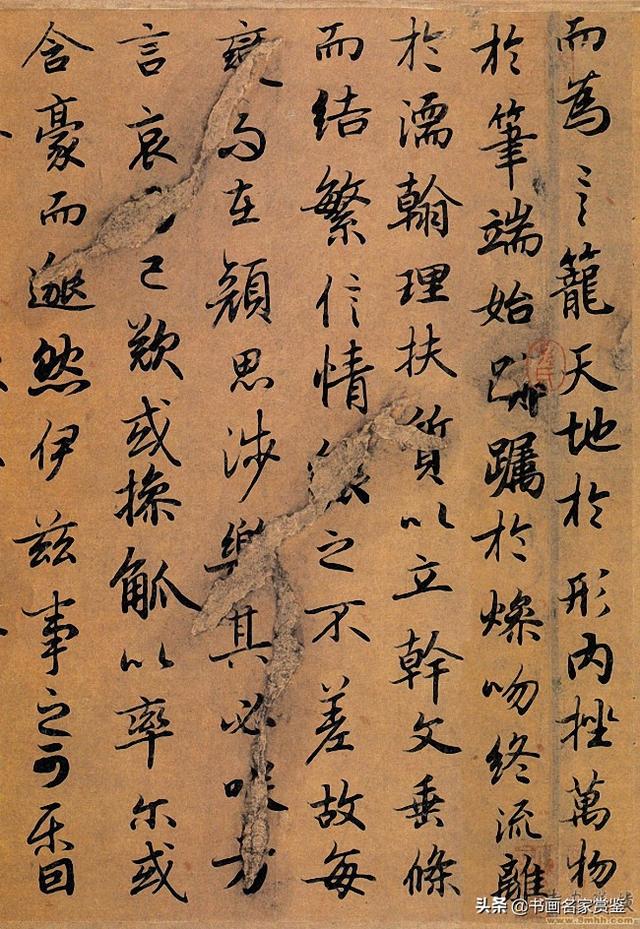 而為言籠天地於形內挫萬物
於筆端始躅於燥吻終流離
於濡翰理扶質以立幹文垂條
而結繁信情之不差故每
變而在顏思涉樂其必笑方
言哀已歎或操觚以率尔或
含豪而邈然伊茲事之可樂固
头条 @书画名家赏鉴